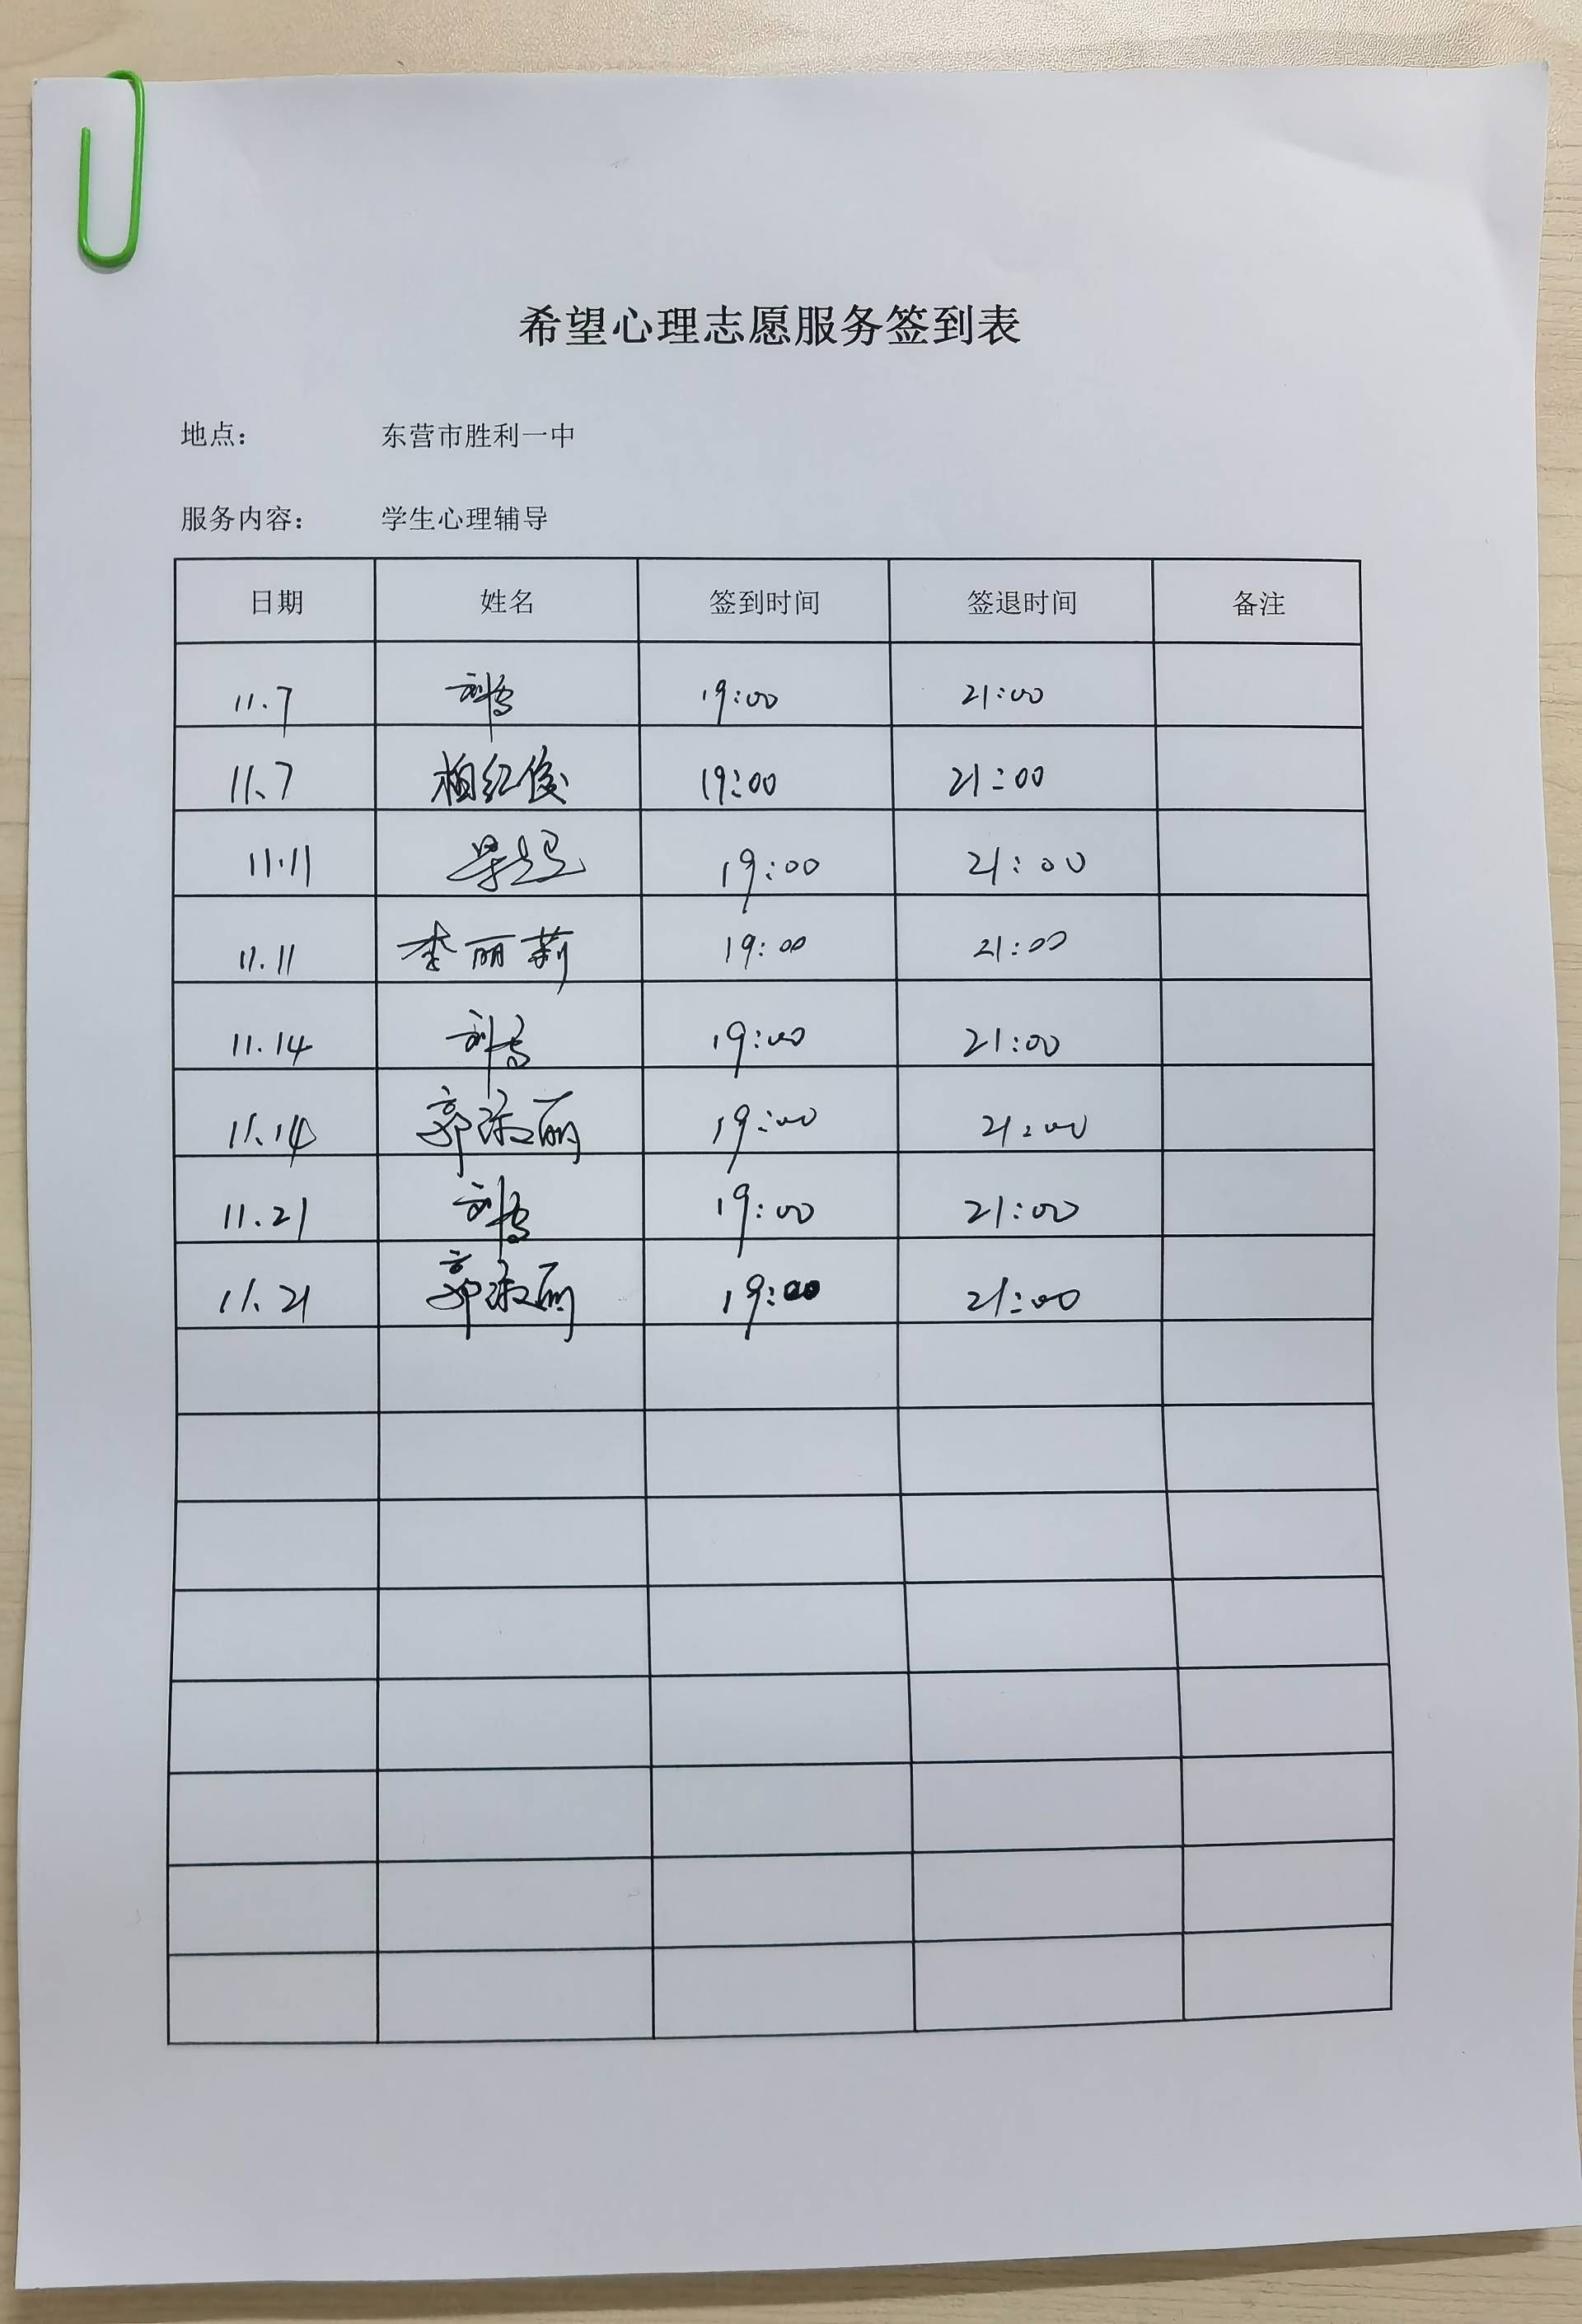 希望心理志愿服务签到表
地点： 东营市胜利一中
服务内容： 学生心理辅导
日期 姓名 签到时间 签退时间 备注
11.7 19:00 21:00
11.7 柏红俊 19:00 21:00
11.11 19:00 21:00
11.11 李丽莉 19:00 21:00
11.14 19:00 21:00
11.14 郭淑丽 19:00 21:00
11.21 19:00 21:00
11.21 郭淑丽 19:00 21:00